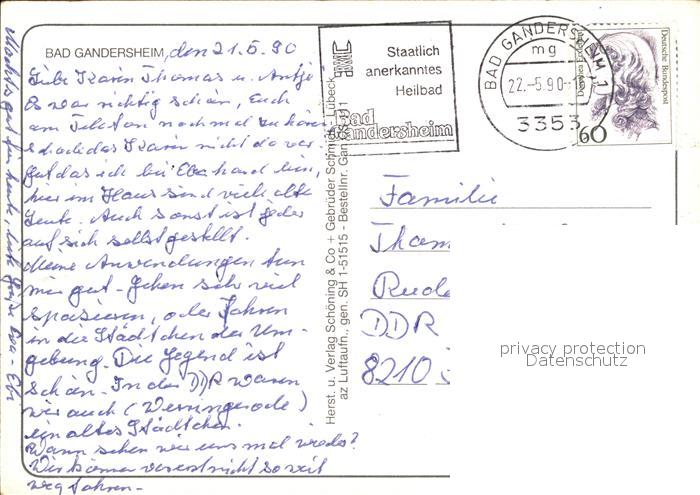 BAD GANDERSHEIM, den 21.5.90
Liebe Karin Thomas u. Antje
Es war richtig schön, Euch
am Telefon nochmal zu hören
schade das Karin nicht da war.
gut das ich bei Eba hand bin,
hier im Haus sind viele alte
Leute. Auch sonst ist jeder
auf sich selbst gestellt.
Meine Anwendungen tun
mir gut. Gehen sehr viel
spazieren, oder fahren
in die Städtchen der Um-
gebung. Die Gegend ist
schön. In der DDR waren
wir auch (Wernigerode)
ein altes Städtchen.
Wann sehen wir uns mal wieder?
Wir können vorerst nicht so weit
weg fahren.-
Machts gut für heute, liebe Grüße
Staatlich
anerkanntes
Heilbad
Bad
Gandersheim
BAD GANDERSHEIM 1
mg
22.-5.90-1
3353
Deutsche Bundespost
60
Herst. u. Verlag Schöning & Co + Gebrüder Schmidt, Lübeck
az Luftaufn., gen. SH 1-51515 - Bestellnr. Gan
Familie
Thom
Rudo
DDR
8210
privacy protection
Datenschutz